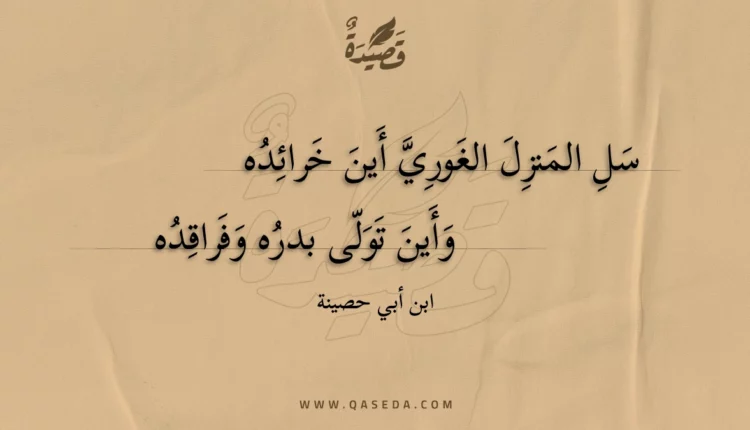 قَصِيدَةٌ
سَلِ المَنزِلَ الغَورِيَّ أَينَ خَرائِدُه
وَأَينَ تَوَلّى بدرُه وَفَراقِدُه
ابن أبي حصينة
WWW.QASEDA.COM